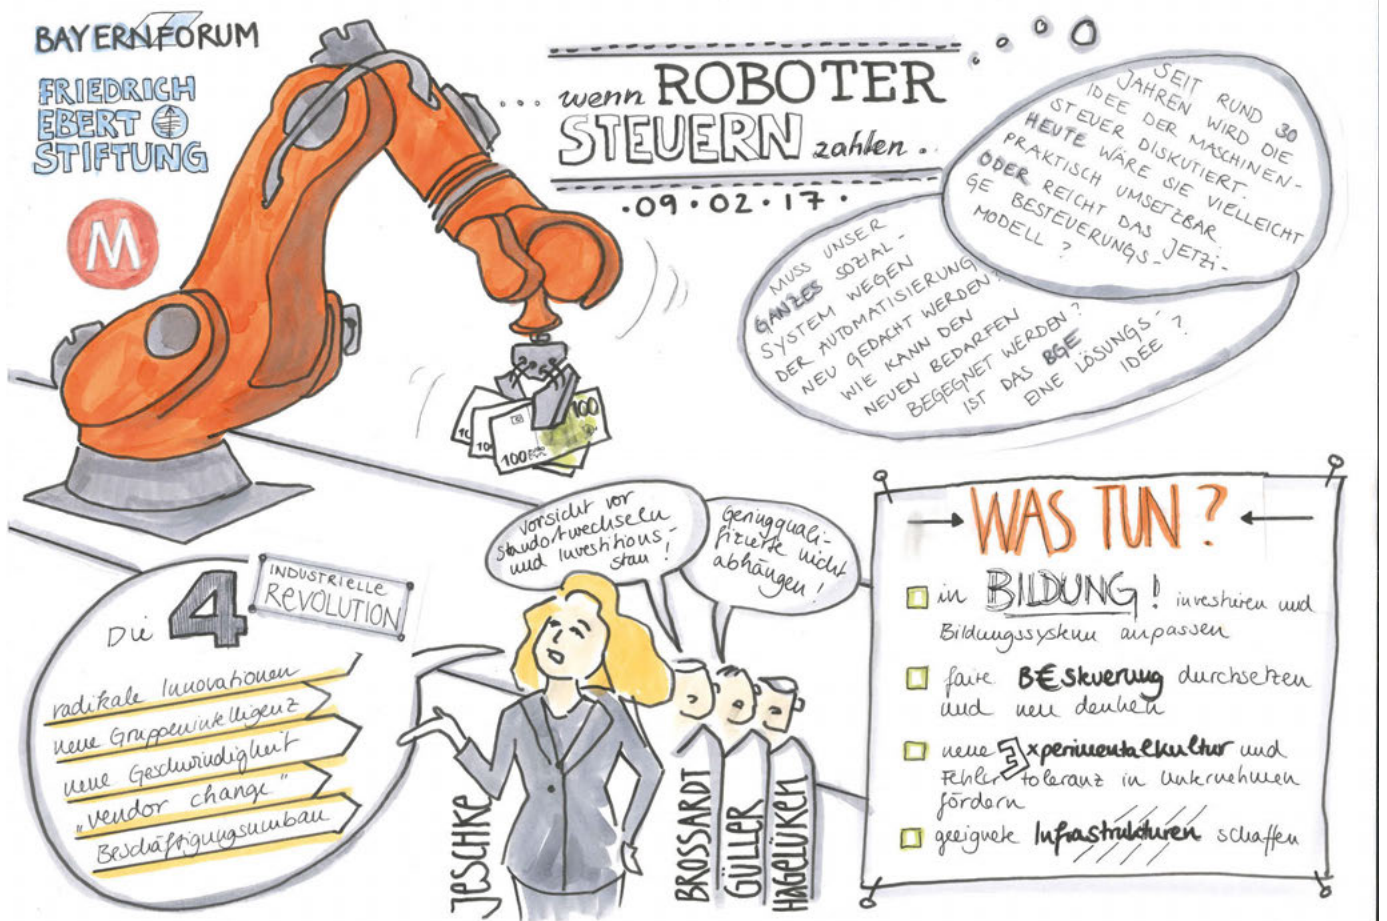 BAYERNFORUM
FRIEDRICH
EBERT
STIFTUNG
M
... wenn ROBOTER
STEUERN zahlen.
·09·02·17·
SEIT RUND 30
JAHREN WIRD DIE
IDEE DER MASCHINEN-
STEUER DISKUTIERT.
HEUTE WÄRE SIE VIELLEICHT
PRAKTISCH UMSETZBAR
ODER REICHT DAS JETZI-
GE BESTEUERUNGS-
MODELL ?
MUSS UNSER
GANZES SOZIAL-
SYSTEM WEGEN
DER AUTOMATISIERUNG
NEU GEDACHT WERDEN?
WIE KANN DEN
NEUEN BEDARFEN
BEGEGNET WERDEN?
IST DAS BGE
EINE LÖSUNGS-
IDEE ?
100
10
10
100
Vorsicht vor
standortwechseln
und Investitions-
stau !
Geringquali-
fizierte nicht
abhängen !
Die 4
INDUSTRIELLE
REVOLUTION
radikale Innovationen
neue Gruppenintelligenz
neue Geschwindigkeit
„vendor change"
Beschäftigungsumbau
JESCHKE
BROSSARDT
GÜLLER
HAGELÜKEN
→ WAS TUN? ←
in BILDUNG! investieren und
Bildungssystem anpassen
faire B€steuerung durchsetzen
und neu denken
neue Experimentalkultur und
Fehlertoleranz in Unternehmen
fördern
geeignete Infrastrukturen schaffen